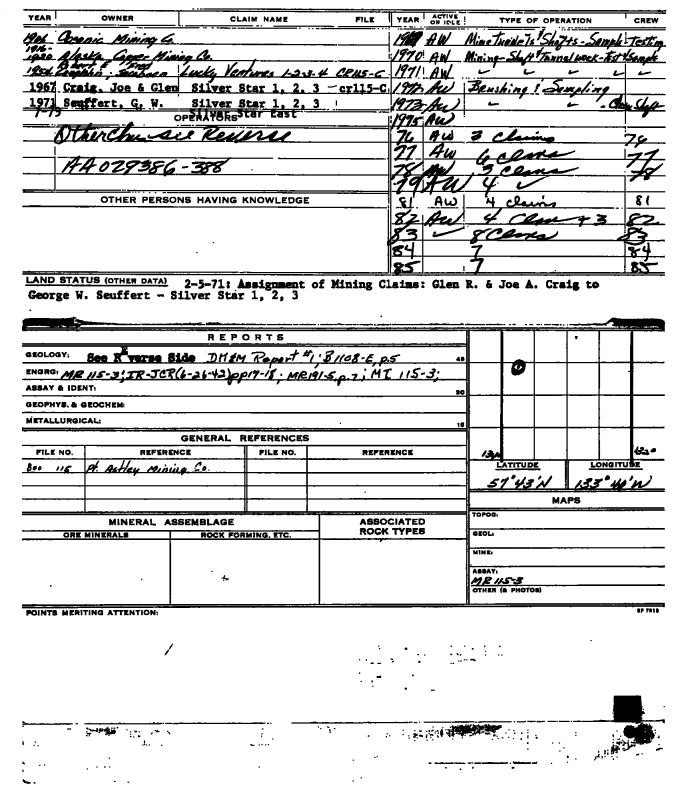 YEAR OWNER CLAIM NAME FILE YEAR ACTIVE OR IDLE TYPE OF OPERATION CREW
1906 Oceanic Mining Co. AW Mine Tunnels & Shafts - Sample - Testing
1920 Alaska Copper Mining Co. 1970 AW Mining - Shaft & Tunnel work - Test & Sample
Lucky Ventures 1-2-3-4 CR115-C 1971 AW " " " "
1967 Craig, Joe & Glen Silver Star 1, 2, 3 - cr115-C 1972 AW Brushing & Sampling
1971 Seuffert, G. W. Silver Star 1, 2, 3 1973 AW " " - Clean Shaft
Star East
OPERATORS 1975 AW
Other Chu see Reverse 76 AW 3 Claims 76
77 AW 6 Claims 77
AA029386-388 78 AW 3 Claims 78
79 AW 4 ✓
OTHER PERSONS HAVING KNOWLEDGE 81 AW 4 claims 81
82 AW 4 Claim + 3 82
83 ✓ 8 Claims 83
84 7 84
85 7 85
LAND STATUS (OTHER DATA) 2-5-71: Assignment of Mining Claims: Glen R. & Joe A. Craig to
George W. Seuffert - Silver Star 1, 2, 3
REPORTS
GEOLOGY: See Reverse Side DM&M Report #1; B1108-E, p.5 45
ENGRG: MR 115-3; IR-JCR(6-26-42)pp17-18; MR191-5, p.7; MI 115-3;
ASSAY & IDENT: 30
GEOPHYS. & GEOCHEM:
METALLURGICAL: 15
GENERAL REFERENCES
FILE NO. REFERENCE FILE NO. REFERENCE
115 Pt. Astley Mining Co.
LATITUDE LONGITUDE
57°43'N 133°40'W
MAPS
MINERAL ASSEMBLAGE ASSOCIATED ROCK TYPES
ORE MINERALS ROCK FORMING, ETC.
TOPOG:
GEOL:
MINE:
ASSAY:
MR 115-3
OTHER (& PHOTOS)
POINTS MERITING ATTENTION: